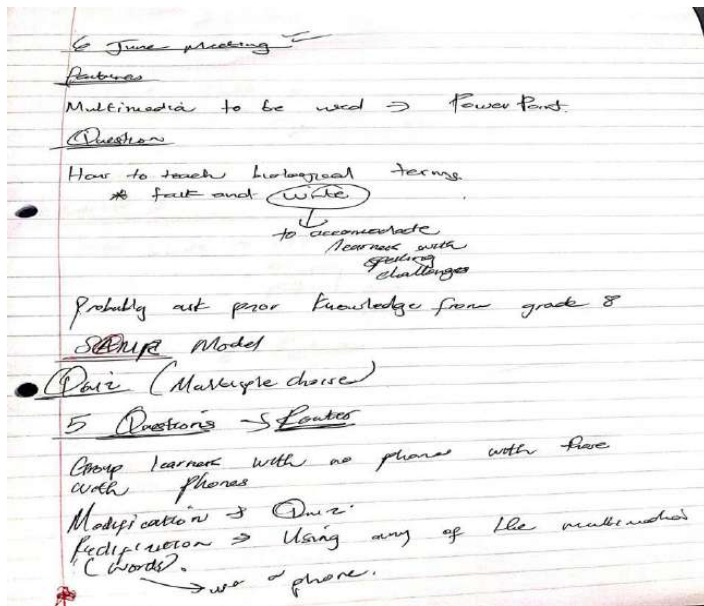 6 June meeting
Features
Multimedia to be used → PowerPoint.
Question
How to teach biological terms.
* talk and write
to accomodate
learners with
spelling
challenges
Probably ask prior knowledge from grade 8
SAMR Model
Quiz (Multiple choice)
5 Questions →
Group learners with no phones with those
with phones
Modification → Quiz.
Redifinition → Using any of the multimedia
(words).
→ use a phone.